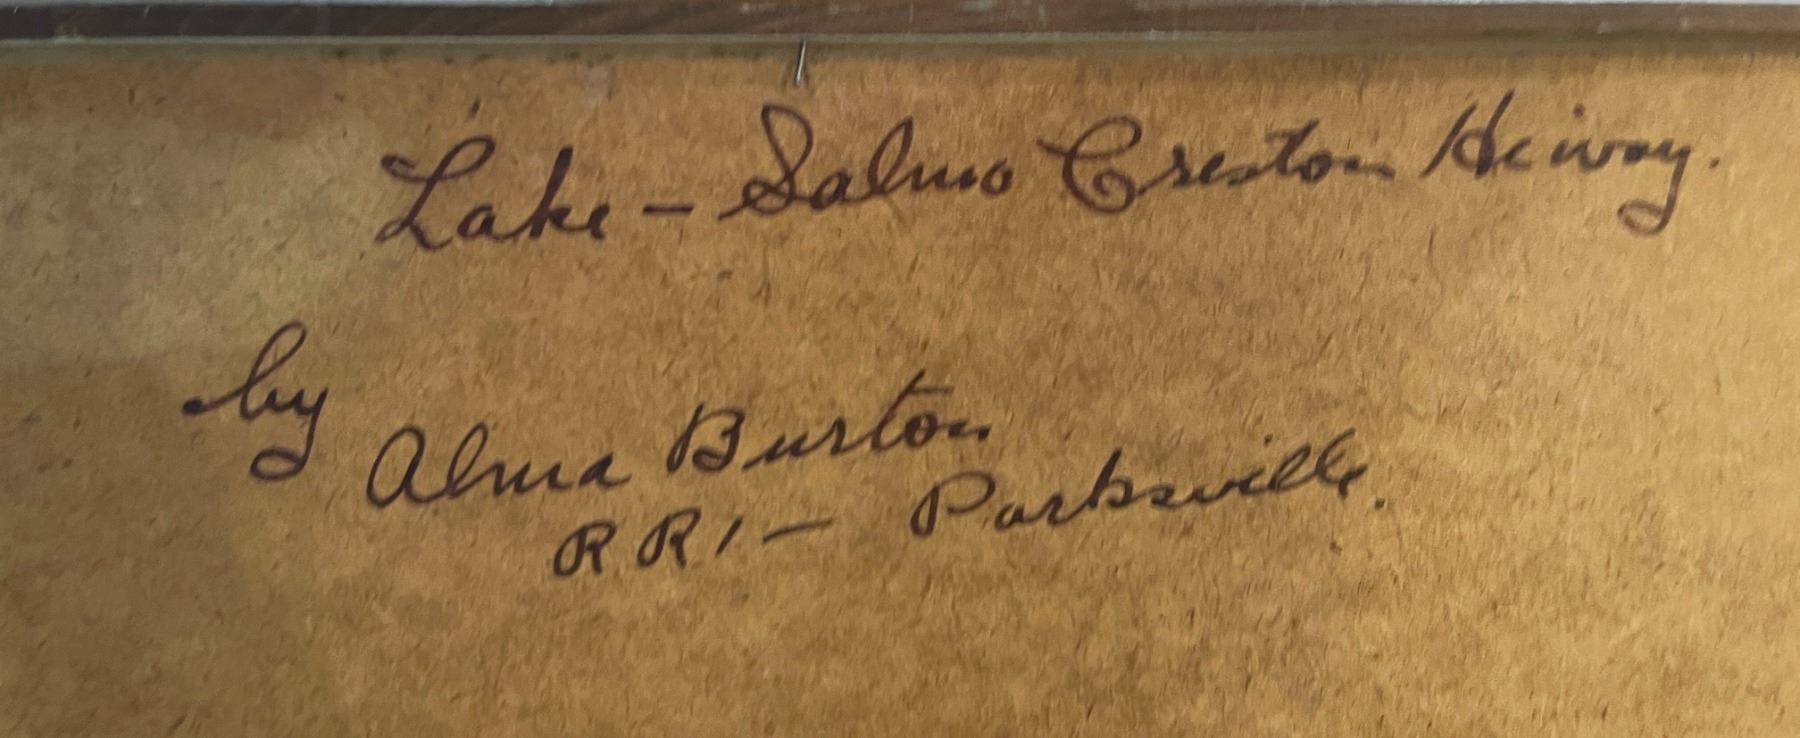 Lake - Salmo Creston Hiway.
by
Alma Burton
RR1 - Parksville.